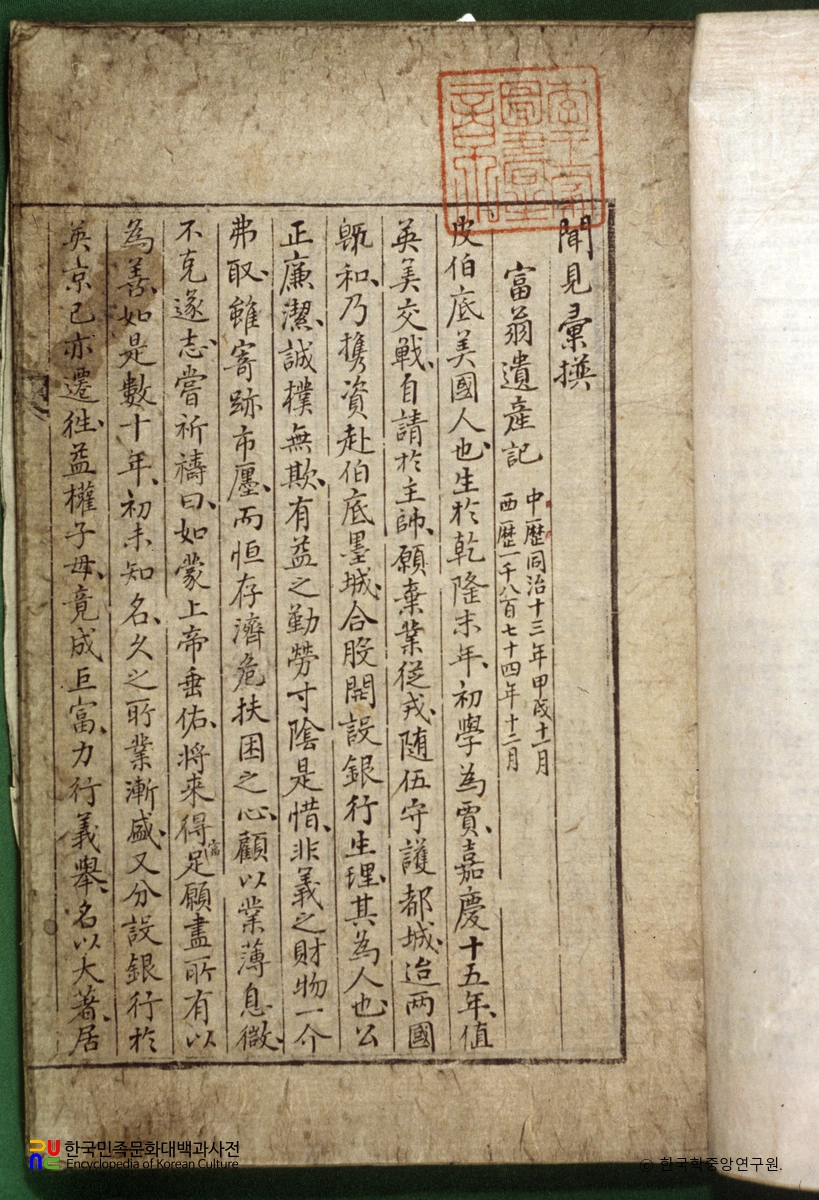 聞見彙撰
富翁遺産記 中歷同治十三年甲戌十一月
西歷一千八百七十四年十二月
皮伯底美國人也生於乾隆末年初學為賈嘉慶十五年值
英美交戰自請於主帥願棄業從戎随伍守護都城迨兩國
既和乃携資赴伯底墨城合股開設銀行生理其為人也公
正廉潔誠樸無欺有益之勤勞寸陰是惜非義之財物一介
弗取雖寄跡市廛而恒存濟危扶困之心顧以業薄息微
不克遂志嘗祈禱曰如蒙上帝垂佑將來得富足願盡所有以
為善如是數十年初未知名久之所業漸盛又分設銀行於
英京己亦遷徃益權子母竟成巨富力行義舉名以大著居
한국민족문화대백과사전
Encyclopedia of Korean Culture
© 한국학중앙연구원.